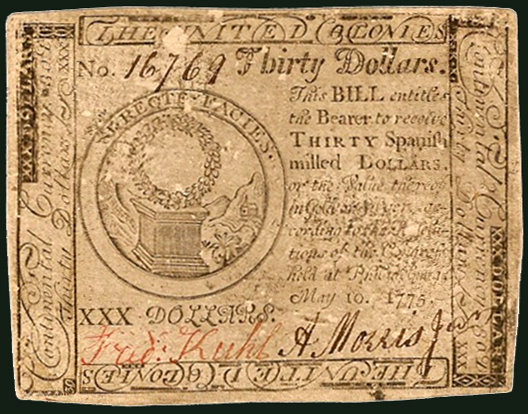 THE UNITED COLONIES
No. 16769 Thirty Dollars.
This BILL entitles
the Bearer to receive
THIRTY Spanish
milled DOLLARS,
or the Value thereof
in Gold or Silver, ac-
cording to the Resolu-
tions of the Congress
held at Philadelphia
May 10. 1775.
SI RECTE FACIES.
XXX DOLLARS.
Fred: Kuhl A Morris Jun
THE UNITED COLONIES
Continental Currency
Thirty Dollars
XXX DOLLARS
Continental Currency
Thirty Dollars
XXX DOLLARS